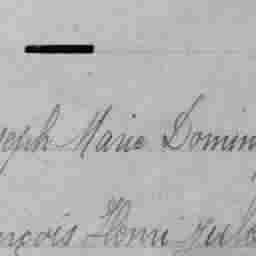 seph Marie Domin
nçois Henri